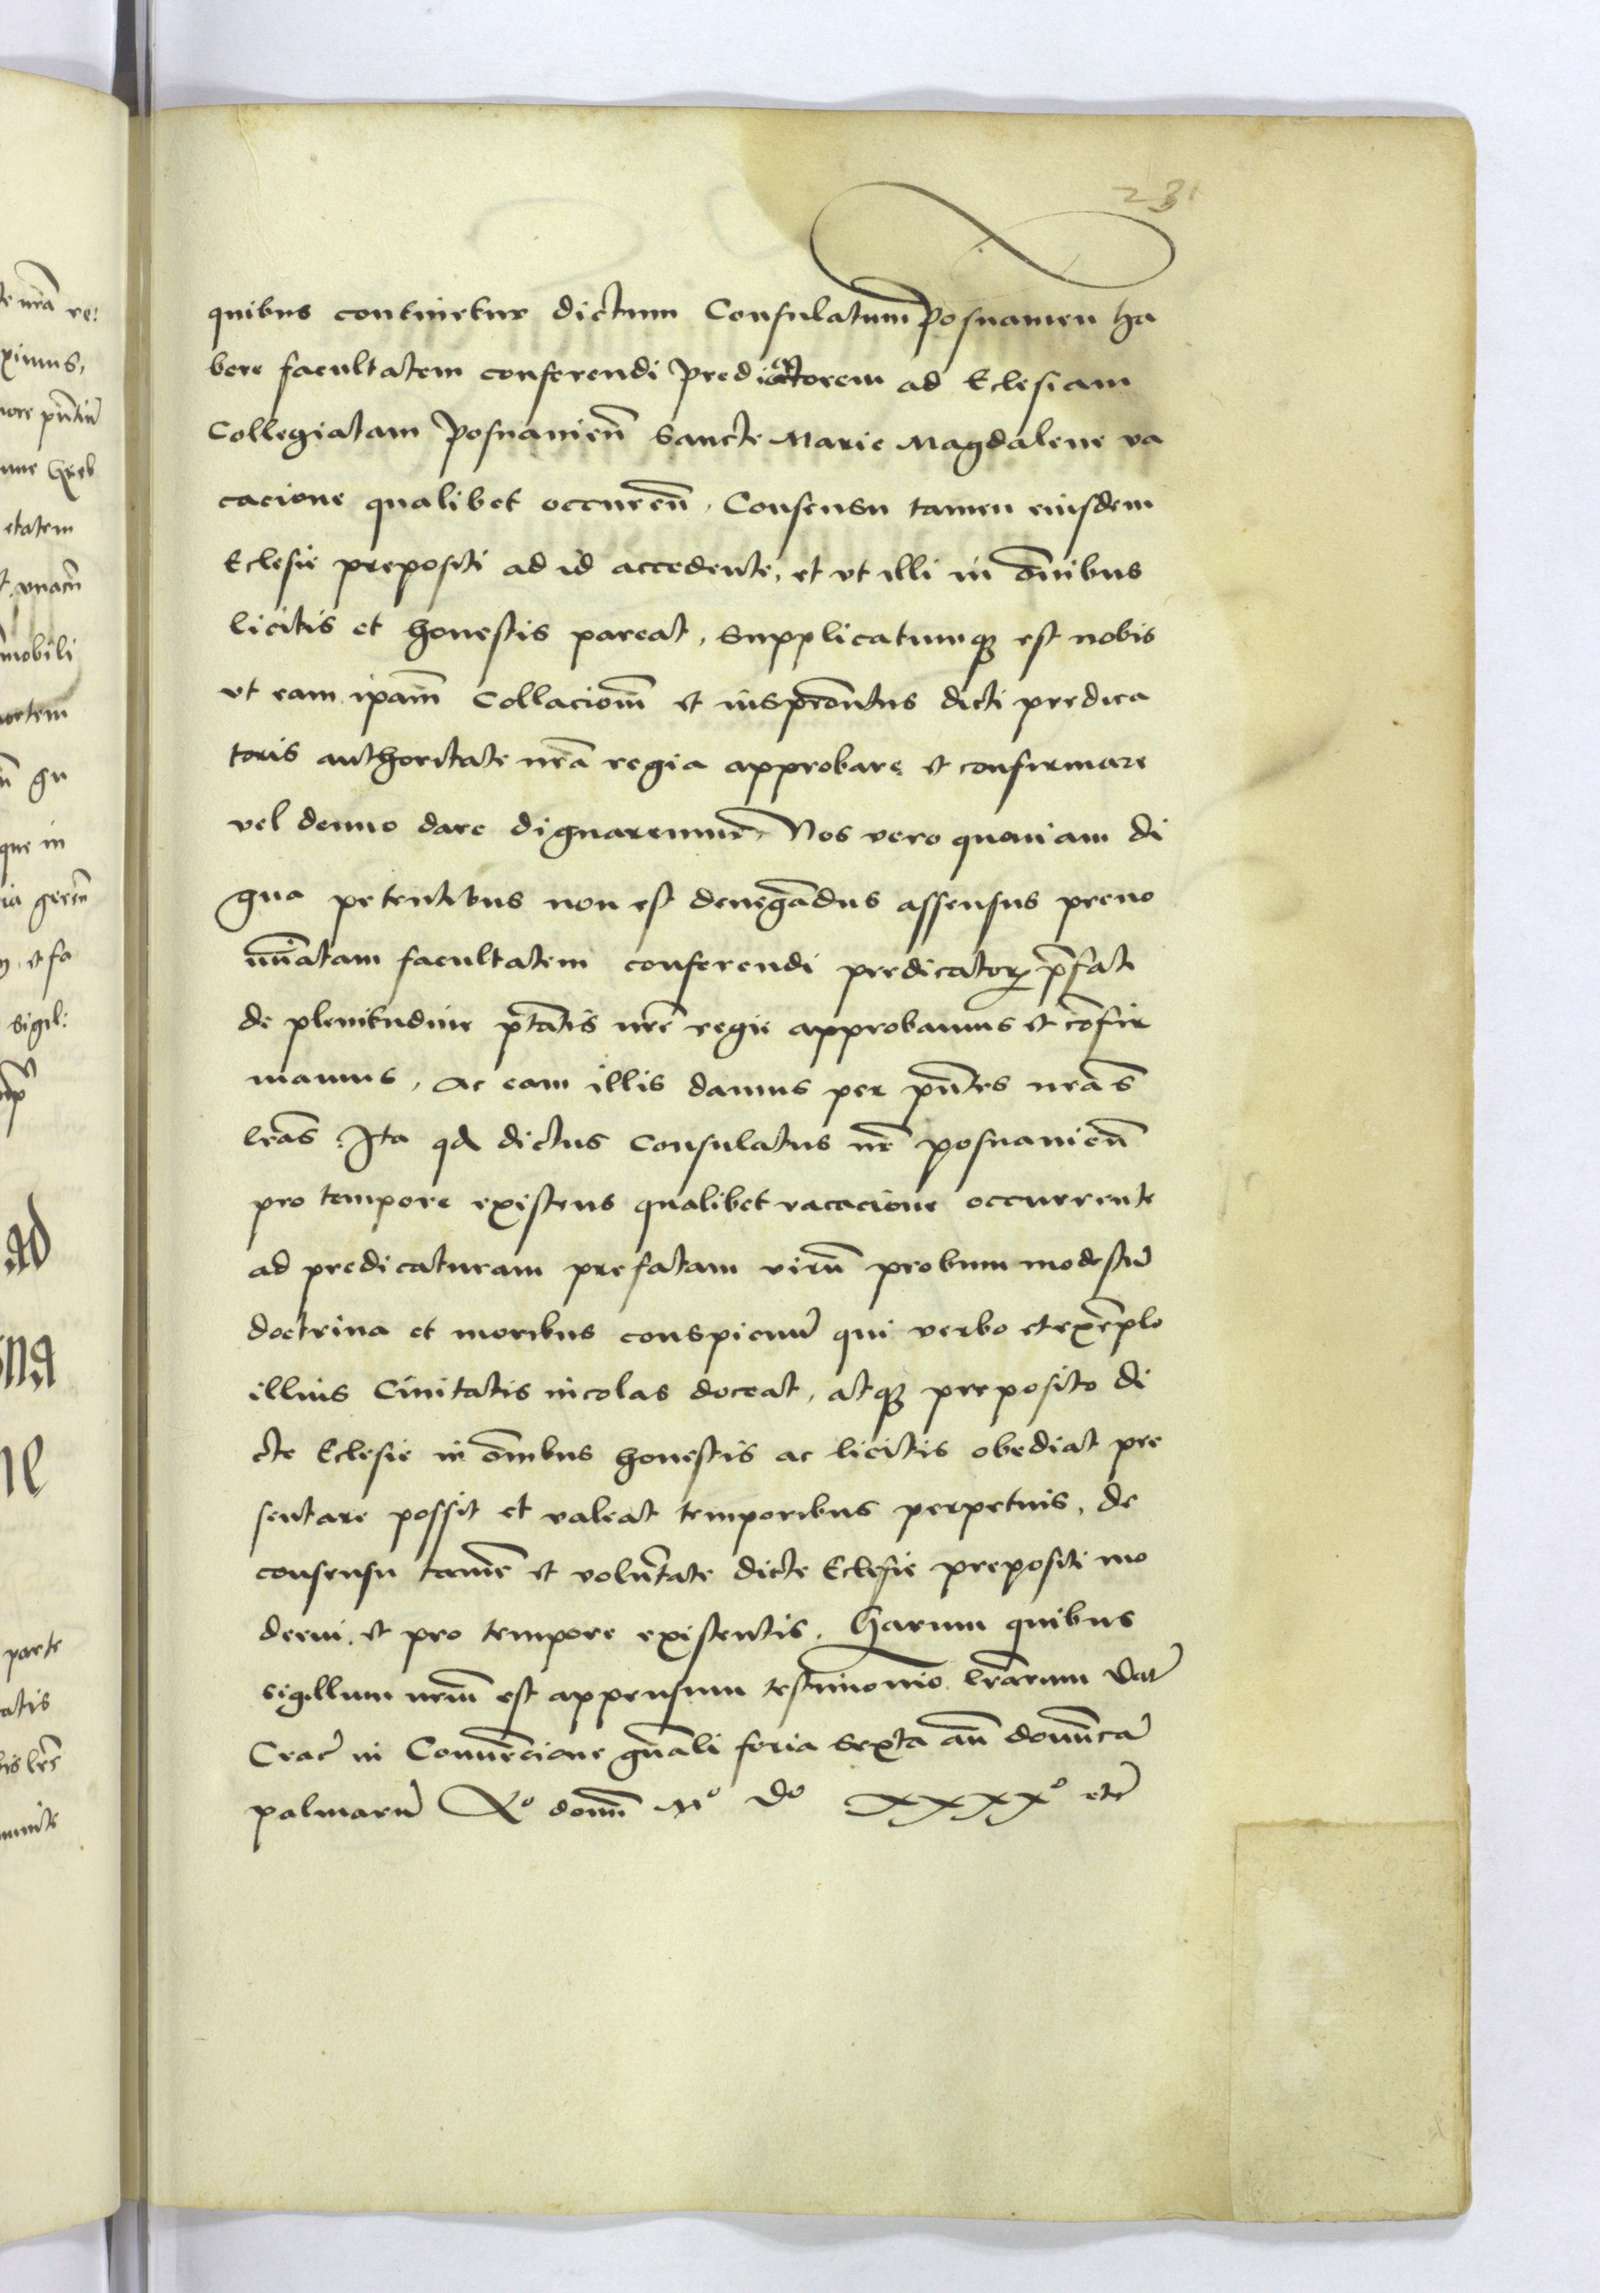 231
quibus continetur dictum Consulatum Posnanien ha
bere facultatem conferendi predicatorem ad Eclesiam
Collegiatam Posnanien̄ Sancte Marie Magdalene va
cacione qualibet occuren̄, Consensu tamen eiusdem
Eclesie prepositi ad id accedente, et vt illi in om̄ibus
licitis et honestis pareat, Supplicatumq₃ est nobis
vt eam ipam̄ Collaciom̄ et dicti predica
toris authoritate nr̄a regia approbare et confirmare
vel denuo dare dignaremur, Nos vero quoniam di
gna petentibus non est denegādus assensus preno
mīatam facultatem conferendi predicatorꝭ p̄fati
de plenitudine ptātis nr̄e regie approbamus et cōfir
mamus, ac eam illis damus per pn̄tes nr̄as
lr̄as Ita qd dictus Consulatus nr̄ posnanien̄
pro tempore existens qualibet vacacione occurrente
ad predicaturam prefatam virū probum modestū
doctrina et moribus conspicuū qui verbo et exēplo
illius Ciuitatis incolas doceat, atq₃ preposito di
cte Eclesie in om̄ibus honestis ac licitis obediat pre
sentare possit et valeat temporibus perpetuis, de
consensu tamē et volūtate dicte Eclesie prepositi mo
derni et pro tempore existentis. Harum quibus
sigillum nrūm est appensum testimonio lr̄arum Dat̄
Crac̄ in Conuēcione gn̄ali feria sexta an̄ domīcā
palmarū Ao domī Mo Do XXXXo etc̄